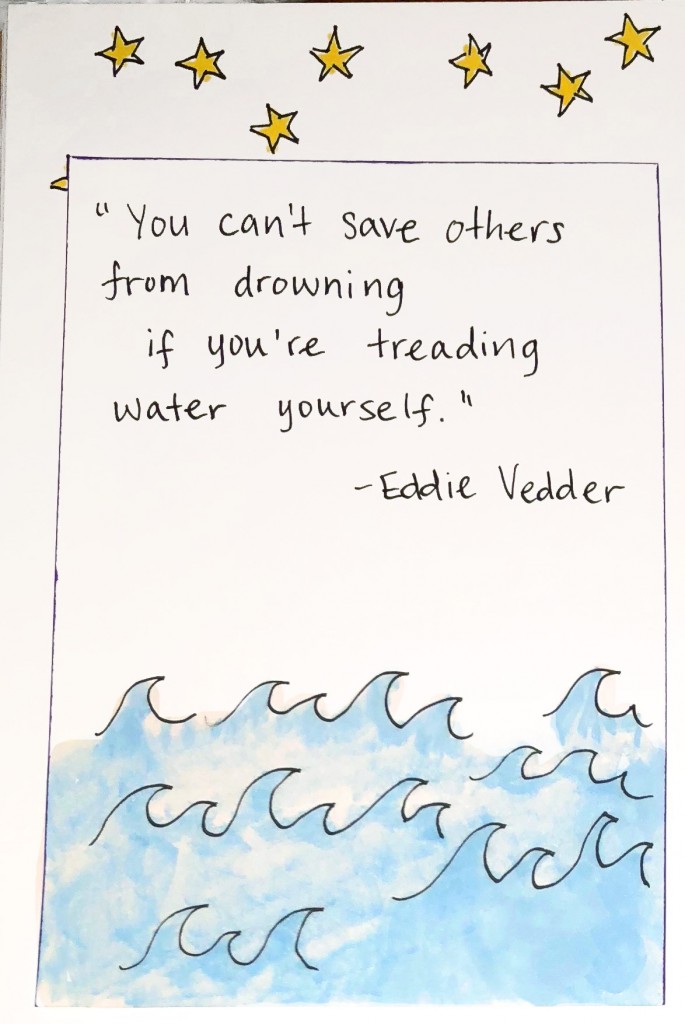 "You can't save others
from drowning
if you're treading
water yourself."
-Eddie Vedder